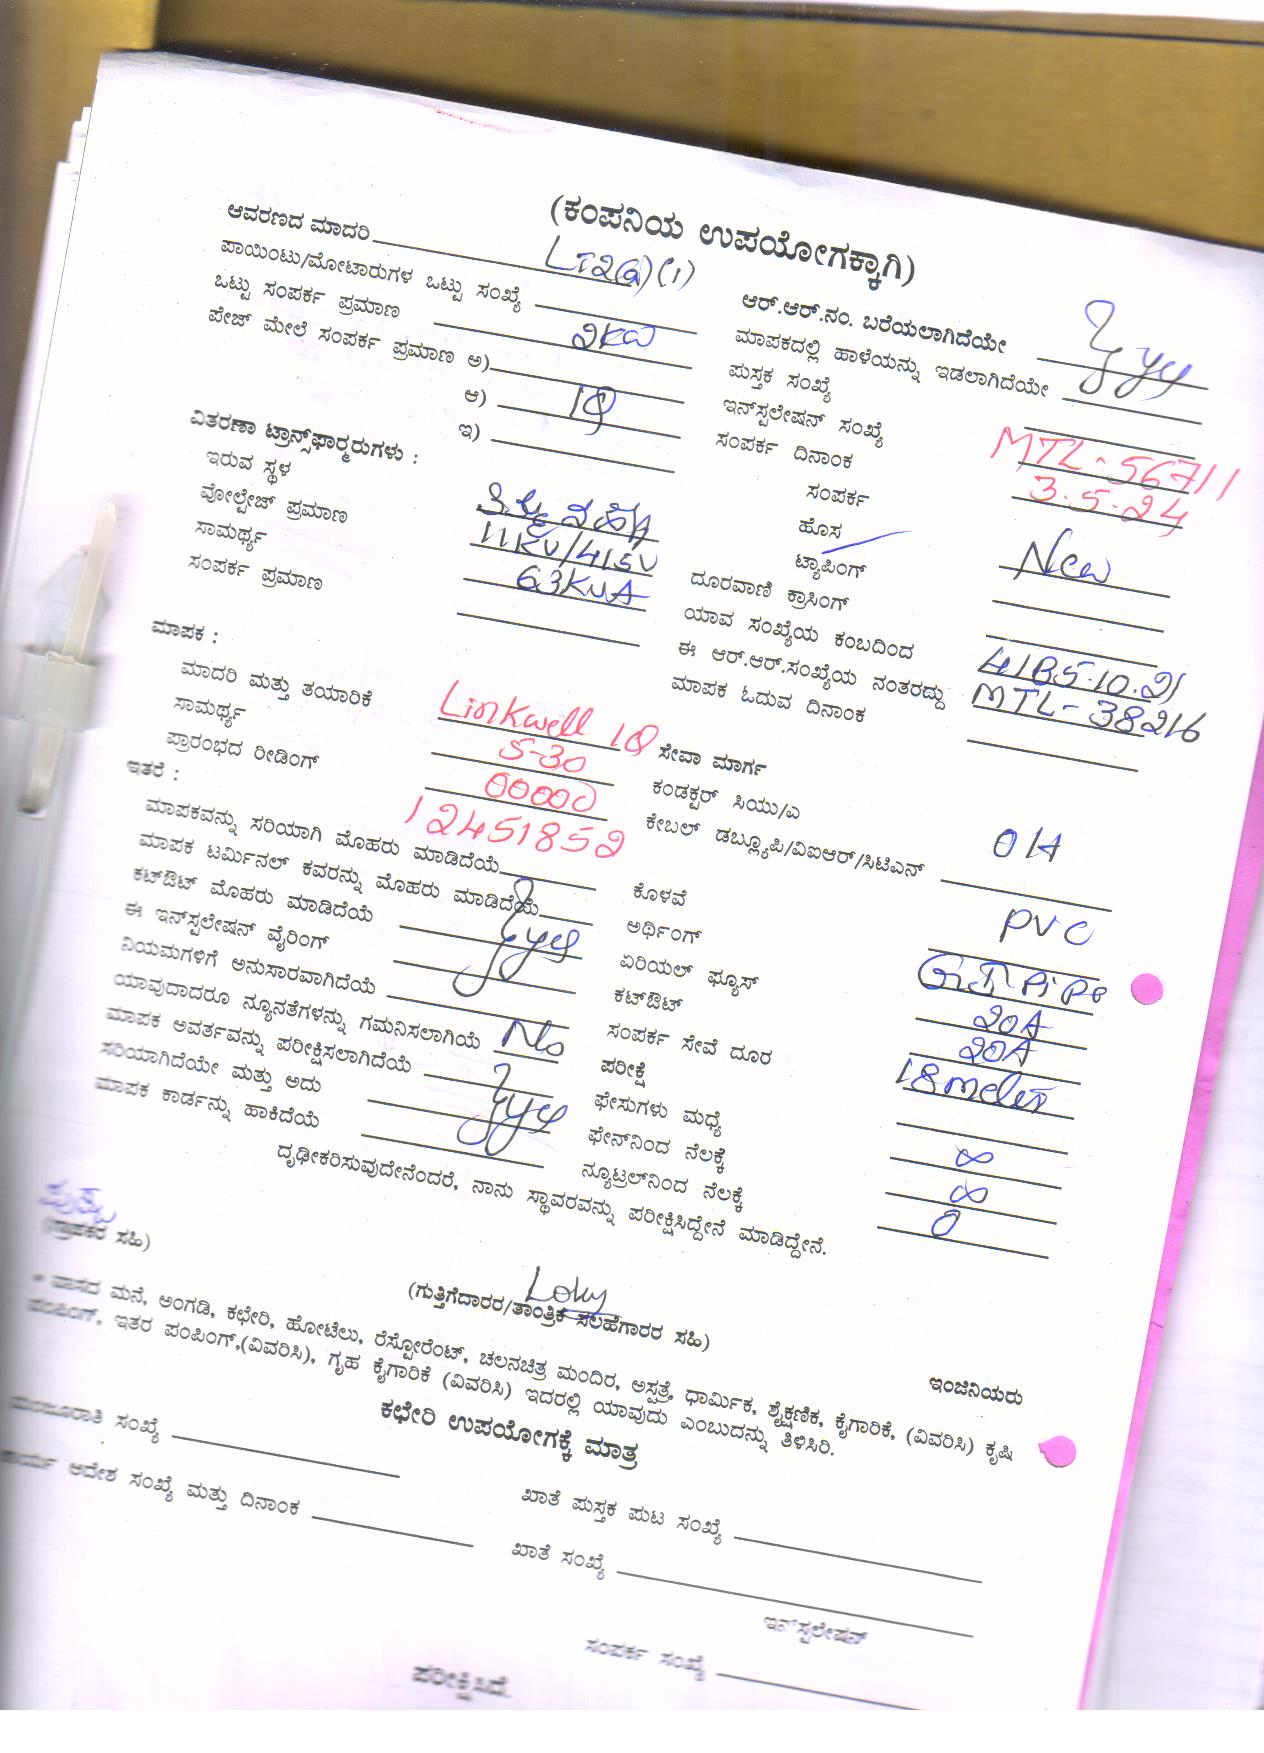 (ಕಂಪನಿಯ ಉಪಯೋಗಕ್ಕಾಗಿ)
ಆವರಣದ ಮಾದರಿ LT2(a)(1)
ಪಾಯಿಂಟು/ಮೋಟಾರುಗಳ ಒಟ್ಟು ಸಂಖ್ಯೆ
ಒಟ್ಟು ಸಂಪರ್ಕ ಪ್ರಮಾಣ 2KW
ಪೇಜ್ ಮೇಲೆ ಸಂಪರ್ಕ ಪ್ರಮಾಣ ಅ)
ಆ) 1Φ
ಇ)
ವಿತರಣಾ ಟ್ರಾನ್ಸ್‌ಫಾರ್ಮರುಗಳು :
ಇರುವ ಸ್ಥಳ
ವೋಲ್ಟೇಜ್ ಪ್ರಮಾಣ 11KV/415V
ಸಾಮರ್ಥ್ಯ 63KVA
ಸಂಪರ್ಕ ಪ್ರಮಾಣ
ಮಾಪಕ :
ಮಾದರಿ ಮತ್ತು ತಯಾರಿಕೆ Linkwell 1Φ
ಸಾಮರ್ಥ್ಯ 5-30
ಪ್ರಾರಂಭದ ರೀಡಿಂಗ್ 00000
12451852
ಇತರೆ :
ಮಾಪಕವನ್ನು ಸರಿಯಾಗಿ ಮೊಹರು ಮಾಡಿದೆಯೆ
ಮಾಪಕ ಟರ್ಮಿನಲ್ ಕವರನ್ನು ಮೊಹರು ಮಾಡಿದೆಯೆ
ಕಟ್‌ಔಟ್ ಮೊಹರು ಮಾಡಿದೆಯೆ yes
ಈ ಇನ್‌ಸ್ಟಲೇಷನ್ ವೈರಿಂಗ್
ನಿಯಮಗಳಿಗೆ ಅನುಸಾರವಾಗಿದೆಯೆ
ಯಾವುದಾದರೂ ನ್ಯೂನತೆಗಳನ್ನು ಗಮನಿಸಲಾಗಿಯೆ No
ಮಾಪಕ ಅವರ್ತವನ್ನು ಪರೀಕ್ಷಿಸಲಾಗಿದೆಯೆ
ಸರಿಯಾಗಿದೆಯೇ ಮತ್ತು ಅದು yes
ಮಾಪಕ ಕಾರ್ಡನ್ನು ಹಾಕಿದೆಯೆ
ಆರ್.ಆರ್.ನಂ. ಬರೆಯಲಾಗಿದೆಯೇ yes
ಮಾಪಕದಲ್ಲಿ ಹಾಳೆಯನ್ನು ಇಡಲಾಗಿದೆಯೇ
ಪುಸ್ತಕ ಸಂಖ್ಯೆ
ಇನ್‌ಸ್ಟಲೇಷನ್ ಸಂಖ್ಯೆ MTL-56711
ಸಂಪರ್ಕ ದಿನಾಂಕ 3.5.24
ಸಂಪರ್ಕ
ಹೊಸ New
ಟ್ಯಾಪಿಂಗ್
ದೂರವಾಣಿ ಕ್ರಾಸಿಂಗ್
ಯಾವ ಸಂಖ್ಯೆಯ ಕಂಬದಿಂದ
ಈ ಆರ್.ಆರ್.ಸಂಖ್ಯೆಯ ನಂತರದ್ದು MTL-38216
ಮಾಪಕ ಓದುವ ದಿನಾಂಕ
ಸೇವಾ ಮಾರ್ಗ
ಕಂಡಕ್ಟರ್ ಸಿಯು/ಎ
ಕೇಬಲ್ ಡಬ್ಲ್ಯೂಪಿ/ವಿಐಆರ್/ಸಿಟಿಎನ್ OH
ಕೊಳವೆ PVC
ಅರ್ಥಿಂಗ್ GI Pipe
ಏರಿಯಲ್ ಫ್ಯೂಸ್ 20A
ಕಟ್‌ಔಟ್ 20A
ಸಂಪರ್ಕ ಸೇವೆ ದೂರ 18 meter
ಪರೀಕ್ಷೆ
ಫೇಸುಗಳು ಮಧ್ಯೆ ∞
ಫೇನ್‌ನಿಂದ ನೆಲಕ್ಕೆ ∞
ನ್ಯೂಟ್ರಲ್‌ನಿಂದ ನೆಲಕ್ಕೆ 0
ದೃಢೀಕರಿಸುವುದೇನೆಂದರೆ, ನಾನು ಸ್ಥಾವರವನ್ನು ಪರೀಕ್ಷಿಸಿದ್ದೇನೆ ಮಾಡಿದ್ದೇನೆ.
(ಗ್ರಾಪಕರ ಸಹಿ)
(ಗುತ್ತಿಗೆದಾರರ/ತಾಂತ್ರಿಕ ಸಲಹೆಗಾರರ ಸಹಿ)
ಇಂಜಿನಿಯರು
* ವಾಸದ ಮನೆ, ಅಂಗಡಿ, ಕಛೇರಿ, ಹೋಟೆಲು, ರೆಸ್ಟೋರೆಂಟ್, ಚಲನಚಿತ್ರ ಮಂದಿರ, ಅಸ್ಪತ್ರೆ, ಧಾರ್ಮಿಕ, ಶೈಕ್ಷಣಿಕ, ಕೈಗಾರಿಕೆ, (ವಿವರಿಸಿ) ಕೃಷಿ
ಪಂಪಿಂಗ್, ಇತರ ಪಂಪಿಂಗ್,(ವಿವರಿಸಿ), ಗೃಹ ಕೈಗಾರಿಕೆ (ವಿವರಿಸಿ) ಇದರಲ್ಲಿ ಯಾವುದು ಎಂಬುದನ್ನು ತಿಳಿಸಿರಿ.
ಕಛೇರಿ ಉಪಯೋಗಕ್ಕೆ ಮಾತ್ರ
ಮಂಜೂರಾತಿ ಸಂಖ್ಯೆ
ಖಾತೆ ಪುಸ್ತಕ ಪುಟ ಸಂಖ್ಯೆ
ಕಾರ್ಯ ಆದೇಶ ಸಂಖ್ಯೆ ಮತ್ತು ದಿನಾಂಕ
ಖಾತೆ ಸಂಖ್ಯೆ
ಇನ್‌ಸ್ಟಲೇಷನ್
ಸಂಪರ್ಕ ಸಂಖ್ಯೆ
ಪರೀಕ್ಷಿಸಿದೆ.